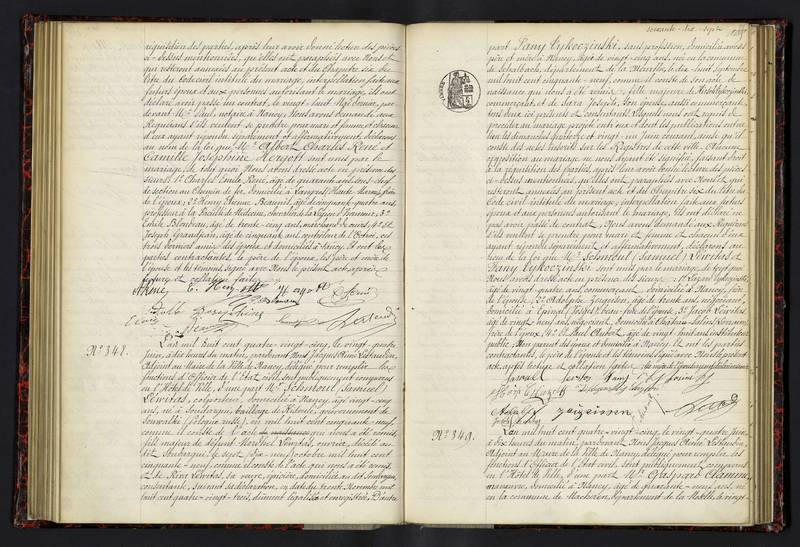 réquisition des parties, après leur avoir donné lecture des pièces
ci-dessus mentionnées, qui elles sont paraphées avec Nous et
qui resteront annexées au présent acte et du Chapitre six du
titre du Code civil intitulé du mariage, interpellation faite aux
futurs époux et aux personnes autorisant le mariage, ils ont
déclaré avoir passé un contrat, le vingt-huit
devant Me Paul, notaire à Nancy. Nous avons demandé aux
Requérants s'ils veulent se prendre pour mari et femme et chacun
d'eux ayant répondu séparément et affirmativement, déclarons
au nom de la loi que Mr Albert Charles René et
Camille Joséphine Hergott sont unis par le
mariage, de tout quoi Nous avons dressé acte en présence des
sieurs 1° Charles Emile René, âgé de quarante ans, sous-chef
de section au Chemin de fer, domicilié à Langres (Haute-Marne), frère
de l'époux; 2° Henry Etienne Beaunis, âgé de cinquante-quatre ans,
professeur à la Faculté de Médecine, chevalier de la Légion d'honneur; 3°
Emile Blondeau, âgé de trente-cinq ans, marchand de cuirs, 4° et
Joseph Grandjean, âgé de cinquante ans, contrôleur de l'Octroi, ces
trois derniers amis des époux et domiciliés à Nancy. Et ont les
parties contractantes, le père de l'époux, les père et mère de
l'épouse et les témoins, signé avec Nous le présent acte après
lecture et collation faite.
A. René C. Hergott
N° 348.
L'an mil huit cent quatre-vingt-cinq, le vingt-quatre
juin, à dix heures du matin, pardevant Nous Jacques
Adjoint au Maire de la Ville de Nancy, délégué pour remplir les
fonctions d'Officier de l'Etat civil, sont publiquement comparus
en l'Hôtel de Ville, d'une part Mr Schmoul Samuel
Lévitas, colporteur, domicilié à Nancy, âgé vingt-cinq
ans, né à Sondargu, bailliage de Kidoulé, gouvernement de
Souwalki (Pologne russe), en mil huit cent cinquante-neuf,
comme il conste de l'acte de qui nous a été remis,
fils majeur de défunt Herschel Lévitas, ouvrier, décédé au
dit Sondargui, le sept dix-neuf octobre mil huit cent
cinquante-neuf, comme il conste de l'acte qui nous a été remis,
et de Réni Lévitas, sa veuve, épicière, domiciliée au dit Sondargui,
consentante, suivant sa déclaration, en date du trente Novembre mil
huit cent quatre-vingt-trois, dûment légalisée et enregistrée; D'autre
soixante-dix-sept
part Fany Cykoczinski, sans profession, domiciliée avec ses
père et mère à Nancy, âgée de vingt-cinq ans, née en la commune
de Schalbach, département de la Meurthe, le dix-neuf Septembre
mil huit cent cinquante-neuf, comme il conste de son acte de
naissance qui nous a été remis, fille majeure de
commerçant, et de Sara Joseph, son épouse, aussi commerçante,
tous deux ici présents et consentants. Lesquels nous ont requis de
procéder au mariage projeté entr'eux et dont les publications ont eu
lieu les dimanches quatorze et vingt-un juin courant, ainsi qu'il
conste des actes inscrits sur les Registres de cette ville. Aucune
opposition au mariage ne nous ayant été signifiée, faisant droit
à la réquisition des parties, après leur avoir donné lecture des pièces
ci-dessus mentionnées, qui elles sont paraphées avec Nous et qui
resteront annexées au présent acte et du Chapitre six du titre du
Code civil intitulé du mariage, interpellation faite aux futurs
époux et aux personnes autorisant le mariage, ils ont déclaré ne
pas avoir passé de contrat. Nous avons demandé aux Requérants
s'ils veulent se prendre pour mari et femme et chacun d'eux
ayant répondu séparément et affirmativement, déclarons au
nom de la loi que Mr Schmoul (Samuel) Lévitas et
Fany Cykoczinski sont unis par le mariage, de tout quoi
Nous avons dressé acte en présence des sieurs: 1° Cykoczinski,
âgé de vingt-quatre ans, commerçant, domicilié à Nancy, frère
de l'épouse, 2° Adolphe, âgé de trente ans, négociant,
domicilié à Epinal (Vosges), beau-frère de l'époux; 3° Jacob Lévitas
âgé de vingt-neuf ans, négociant, domicilié à Château-Salins (Lorraine),
frère de l'époux, 4° et Paul, âgé de vingt-huit ans, instituteur
public, non parent des époux et domicilié à Nancy. Et ont les parties
contractantes, le père de l'épouse et les témoins, signé avec Nous le présent
acte, après lecture et collation faite.
N° 349.
L'an mil huit cent quatre-vingt-cinq, le vingt-quatre juin,
à dix heures du matin, pardevant Nous Jacques
Adjoint au Maire de la Ville de Nancy, délégué pour remplir les
fonctions d'Officier de l'Etat civil, sont publiquement comparus
en l'Hôtel de Ville, d'une part Mr Gaspard Clamme,
manœuvre, domicilié à Nancy, âgé de quarante-neuf ans, né
en la commune de Macheren, département de la Moselle, le vingt-